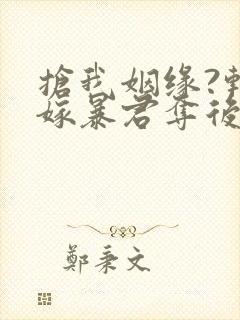 搶我姻缘?轉
嫁暴君奪後
鄭秉文